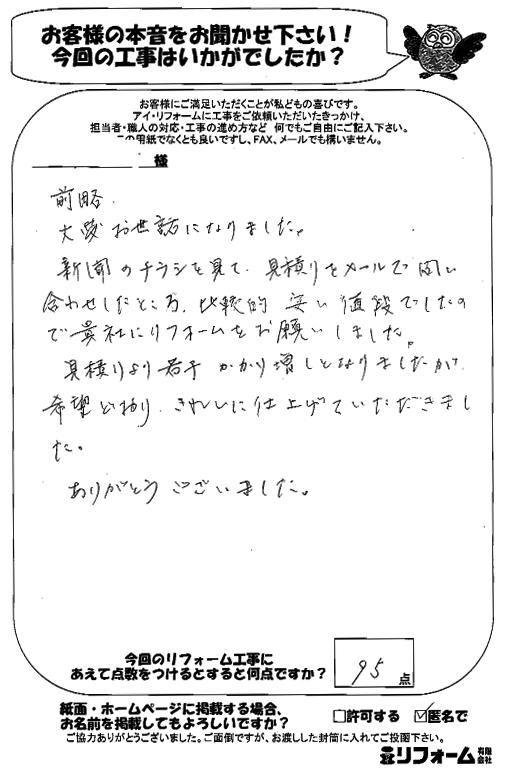 お客様の本音をお聞かせ下さい！
今回の工事はいかがでしたか？
お客様にご満足いただくことが私どもの喜びです。
アイ・リフォームに工事をご依頼いただいたきっかけ、
担当者・職人の対応・工事の進め方など 何でもご自由にご記入下さい。
この用紙でなくとも良いですし、FAX、メールでも構いません。
様
前略.
大変お世話になりました。
新聞のチラシを見て、見積りをメールで問い
合わせしたところ、比較的 安い値段でしたの
で貴社にリフォームをお願いしました。
見積りより若干 かかり増しとなりましたが
希望どおり、きれいに仕上げていただきまし
た。
ありがとうございました。
今回のリフォーム工事に
あえて点数をつけるとすると何点ですか？
95点
紙面・ホームページに掲載する場合、
お名前を掲載してもよろしいですか？
□許可する ☑匿名で
ご協力ありがとうございました。ご面倒ですが、お渡しした封筒に入れてご投函下さい。
リフォーム 有限会社